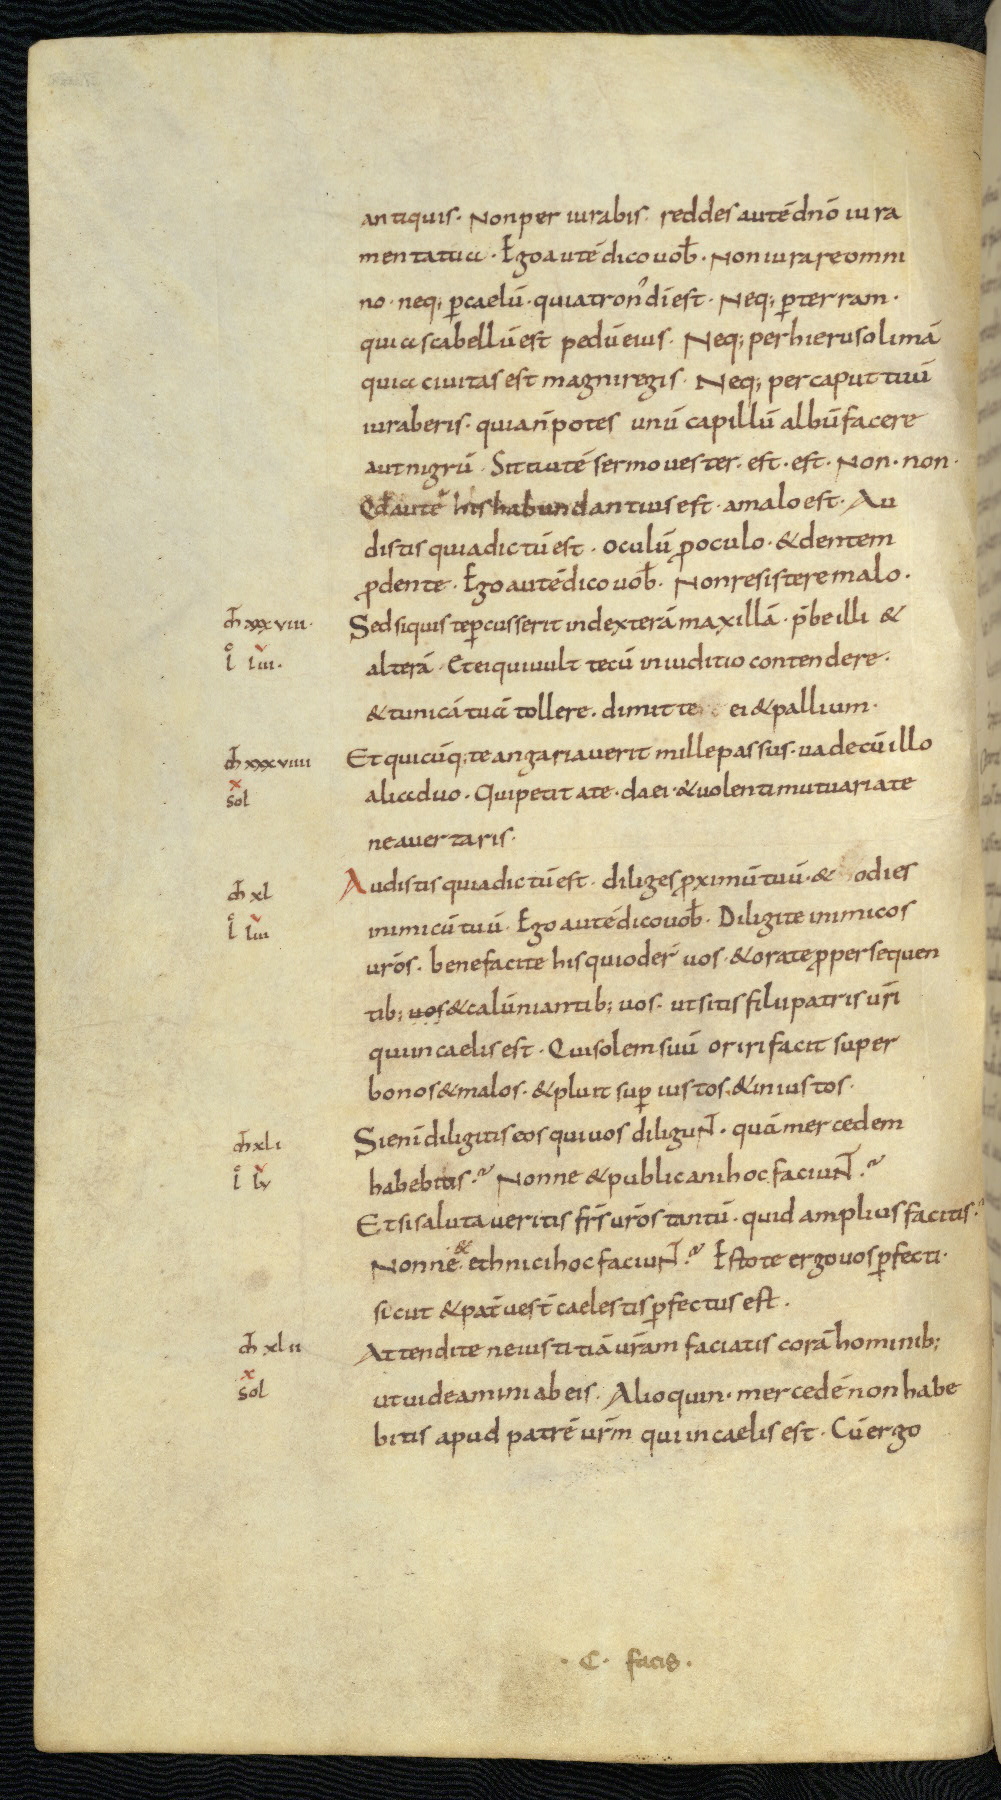 antiquis. Non periurabis. reddes autē dnō iura
menta tua. Ego autē dico uob̄. Non iurare omni
no. neq; ꝑ caelū. quia tron᾽ dī est. Neq; ꝑ terram.
quia scabellū est pedū eius. Neq; per hierusolimā
quia ciuitas est magni regis. Neq; per caput tuū
iuraberis. quia n̄ potes unū capillū albū facere
aut nigrū. Sit autē sermo uester. est. est. Non. non.
Qd̄ autē his habundantius est. a malo est. Au
distis quia dictū est. oculū ꝓ oculo. & dentem
ꝓ dente. Ego autē dico uob̄. Non resistere malo.
cħ xxxviii. Sed siquis te ꝑcusserit in dexterā maxillā. p̄be illi &
l̊ liii. alterā. Et ei qui uult tecū in iuditio contendere.
& tunicā tuā tollere. dimitte ei & pallium.
cħ xxxviiii Et quicūq; te angariauerit mille passus. uade cū illo
x sol alia duo. Qui petit a te. da ei. & uolenti mutuari a te
ne auertaris.
cħ xl Audistis quia dictū est. diliges ꝓximū tuū. & odies
l̊ liii inimicū tuū. Ego autē dico uob̄. Diligite inimicos
ur̄os. benefacite his qui oder̄ uos. & orate ꝓ persequen
tib; uos & calūniantib; uos. ut sitis filii patris ur̄i
qui in caelis est. Qui solem suū oriri facit super
bonos & malos. & pluit suꝑ iustos & iniustos.
cħ xli Si enī diligitis eos qui uos diliguN̄t. quā mercedem
l̊ lv habebitis. Nonne & publicani hoc faciuN̄t.
Et si salutaueritis fr̄s ur̄os tantū. quid amplius facitis.
Nonne & ethnici hoc faciuN̄t. Estote ergo uos ꝑfecti.
sicut & pat̄ uest̄ caelestis ꝑfectus est.
cħ xlii Attendite ne iustitiā ur̄am faciatis corā hominib;
x sol ut uideamini ab eis. Alioquin. mercedē non habe
bitis apud patrē ur̄m qui in caelis est. Cū ergo
. C. facis.